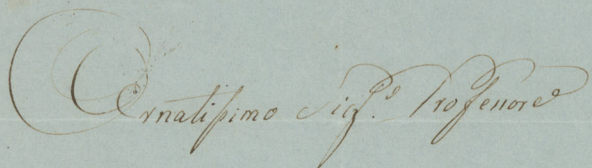 Ornatissimo Sig.e Professore